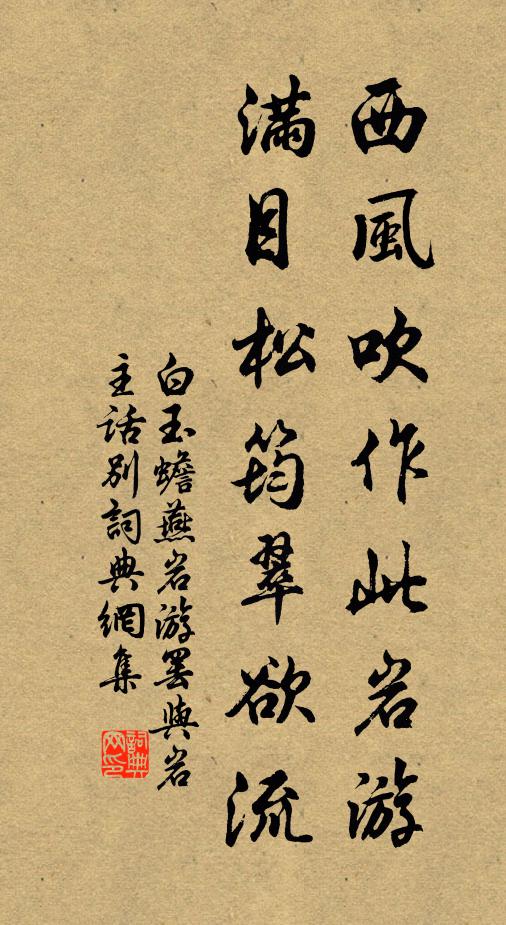 西風吹作此岩游
滿目松筠翠欲流
白玉蟾燕岩游罢與岩
主話別詞典網集
詞典
网印